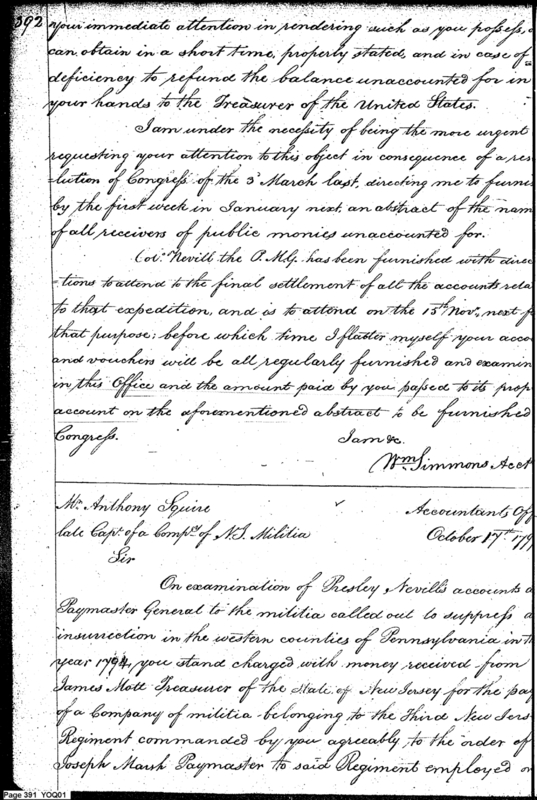 392
your immediate attention in rendering such as you possess, o
can obtain in a short time, properly stated, and in case of
deficiency to refund the balance unaccounted for in
your hands to the Treasurer of the United States.
I am under the necessity of being the more urgent
requesting your attention to this object in consequence of a res
lution of Congress of the 3d March last, directing me to furnis
by the first week in January next, an abstract of the nam
of all receivers of public monies unaccounted for.
Col. Nevill the P.M.G. has been furnished with direc
tions to attend to the final settlement of all the accounts rela
to that expedition, and is to attend on the 15th Nov. next f
that purpose; before which time I flatter myself your acco
and vouchers will be all regularly furnished and examin
in this Office and the amount paid by you passed to its prop
account on the aforementioned abstract to be furnished
Congress.
I am &c.
Wm Simmons Acct
Mr. Anthony Squire
Accountants Off
late Capt. of a Compy. of N.J. Militia
October 17th 179
Sir
On examination of Presley Nevill's accounts a
Paymaster General to the militia called out to suppress a
insurrection in the western counties of Pennsylvania in t
year 1794, you stand charged with money received from
James Mott Treasurer of the State of New Jersey for the pay
of a Company of militia belonging to the Third New Jers
Regiment commanded by you agreeably to the order of
Joseph Marsh Paymaster to said Regiment employed o
Page 391 YOQ01